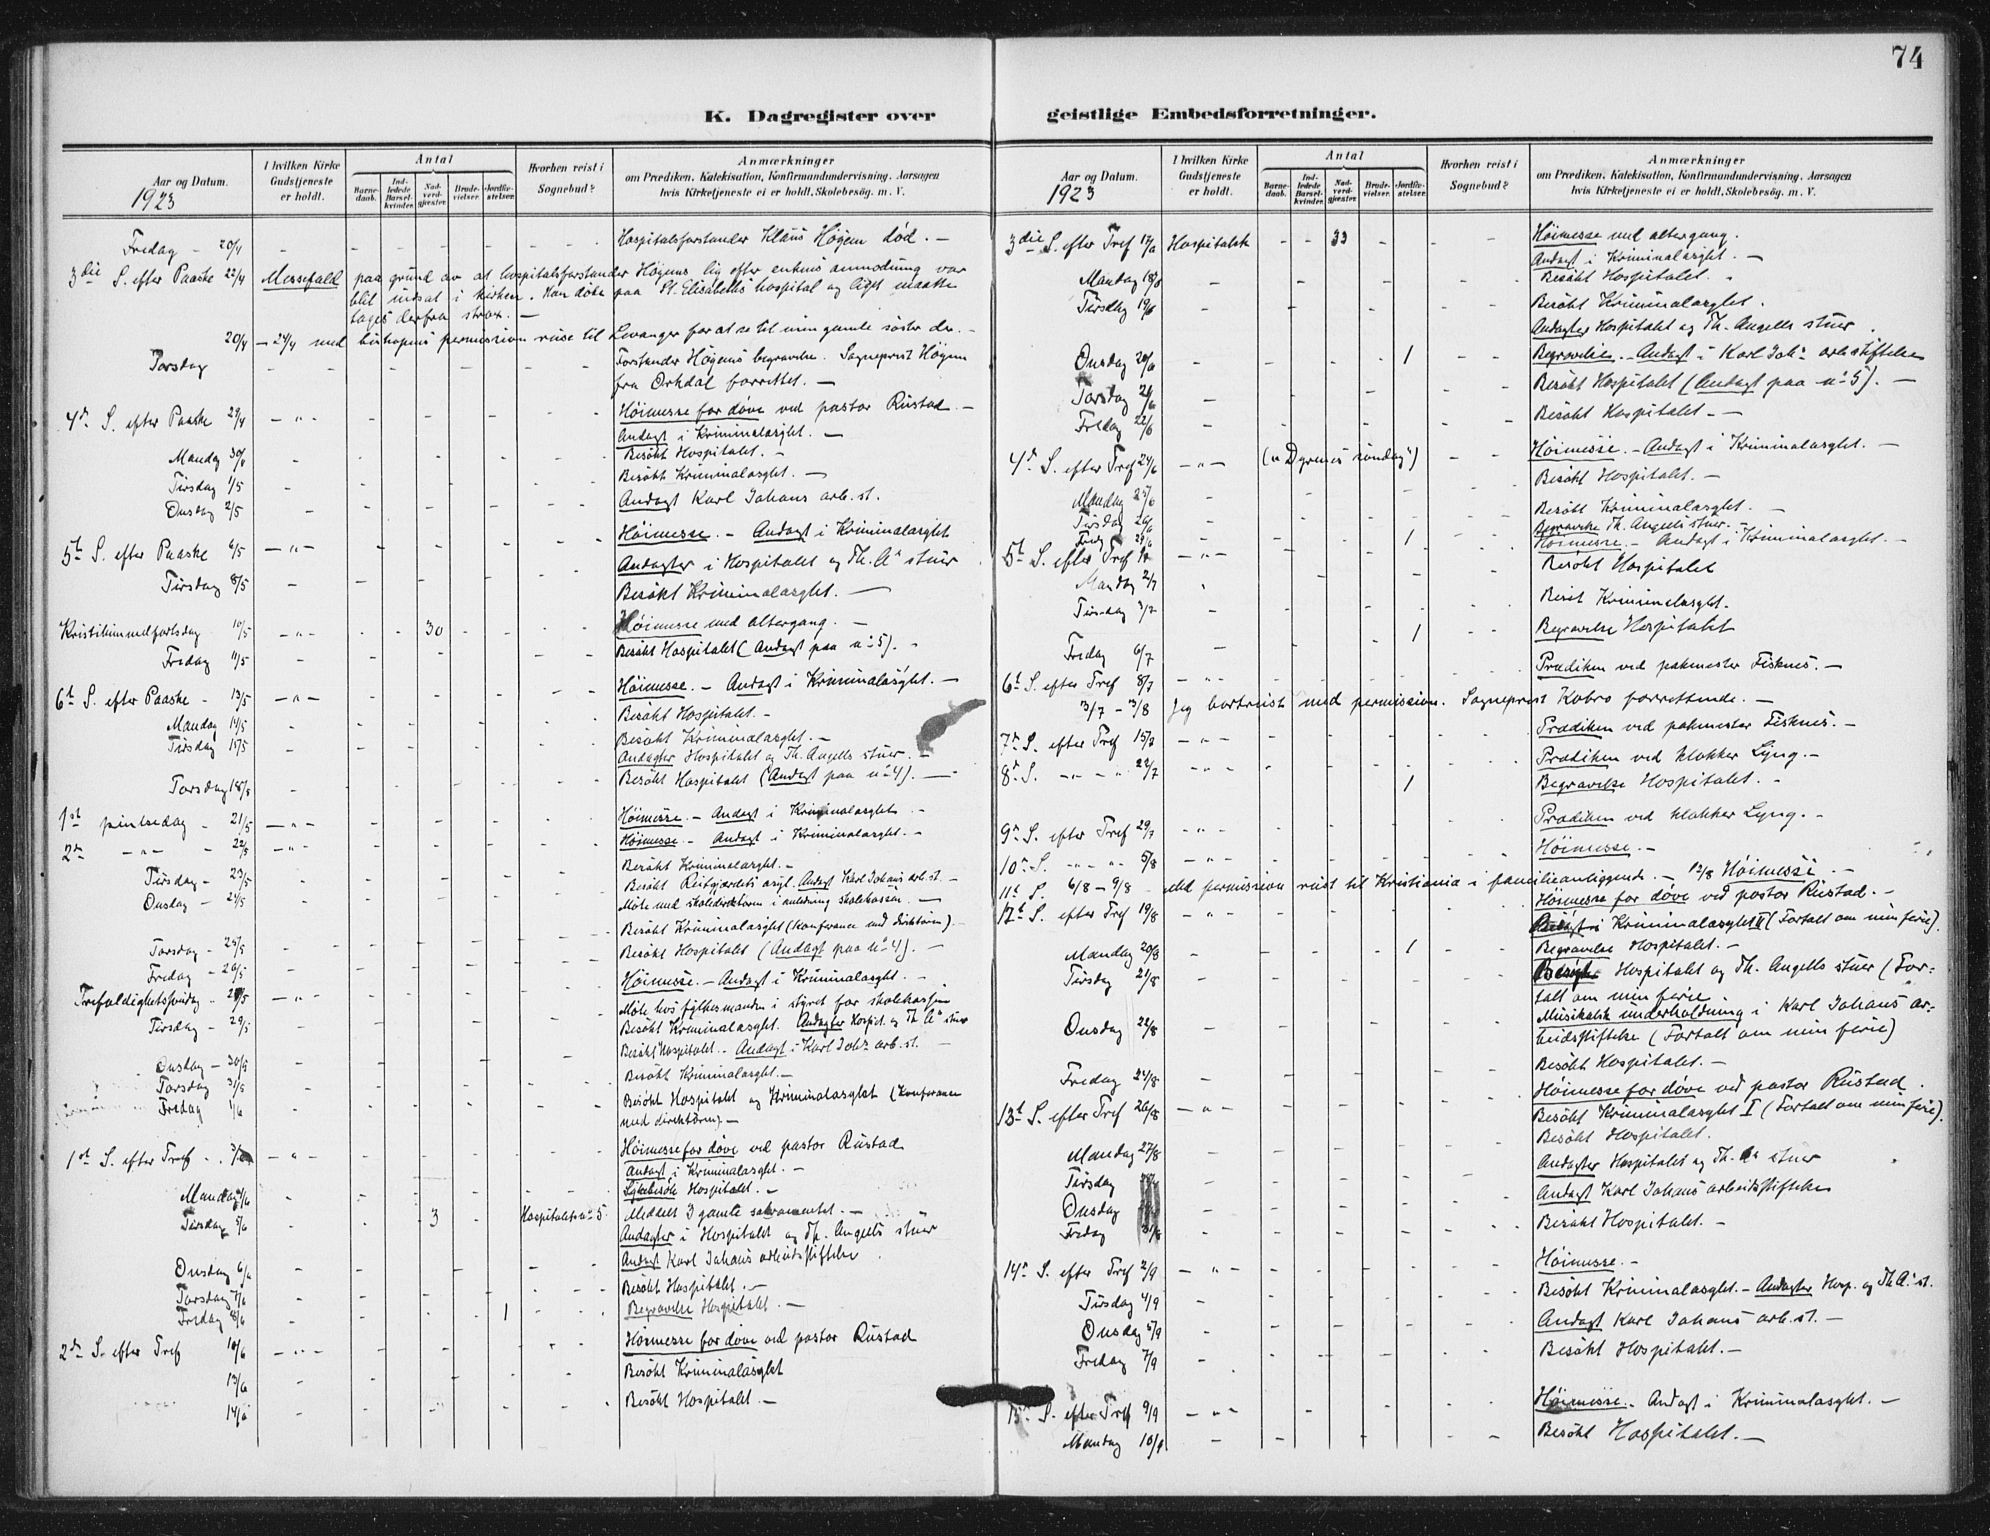 74
K. Dagregister over
Aar og Datum.
1923
I hvilken Kirke Gudstjeneste er holdt.
Antal
Barnedaab.
Indledede Barselkvinder.
Nadverdgjester.
Brudevielser.
Jordfæstelser.
Hvorhen reist i Sognebud?
Anmærkninger
om Prædiken, Katekisation, Konfirmandundervisning. Aarsagen
hvis Kirketjeneste ei er holdt, Skolebesøg. m. V.
Fredag - 20/4 Hospitalsforstander Klaus Högem död. -
3die S. efter Paaske 22/4 Messefald paa grund av at hospitalsforstander Högems lig efter enkens anmodning var
blit indsat i kirken. Han döde paa St. Elisabeths hospital og liget maatte
tages derfra strax. -
20/4 - 24/4 med biskopens permission reise til Levanger for at se til min gamle söster der. -
Torsdag Forstander Högems begravelse. Sogneprest Högem
fra Orkdal forrettet. -
4de S. efter Paaske 29/4 - " - Höimesse for döve ved pastor Rustad. -
Andagt i Kriminalasylet. -
Mandag 30/4 Besökt Hospitalet. -
Tirsdag 1/5 Besökt Kriminalasylet. -
Onsdag 2/5 Andagt Karl Johans arb. st.
5te S. efter Paaske 6/5 - " - Höimesse. - Andagt i Kriminalasylet
Tirsdag 8/5 Andagter i Hospitalet og Th. A's stuer
Besökt Kriminalasylet. -
Kristihimmelfartsdag 10/5 - " - 30 Höimesse med altergang. -
Fredag 11/5 Besökt Hospitalet (Andagt paa no 5). -
6te S. efter Paaske - 13/5 - " - Höimesse. - Andagt i Kriminalasylet. -
Mandag 14/5 Besökt Hospitalet. -
Tirsdag 15/5 Besökt Kriminalasylet. -
Andagter Hospitalet og Th. Angells stuer. -
Torsdag Besökt Hospitalet (Andagt paa no 4). -
1ste pintsedag - 21/5 - " - Höimesse. - Andagt i Kriminalasylet -
2den - " - 22/5 - " - Höimesse. - Andagt i Kriminalasylet. -
Tirsdag - 23/5 Besökt Kriminalasylet. -
Besökt Reitgjærdets asyl. Andagt Karl Johans arb. st. -
Onsdag - 24/5 Möte med skoledirektören i anledning skolekassen. -
Besökt Kriminalasylet (Konferance med direktören). -
Torsdag - 25/5 Besökt Hospitalet (Andagt paa no 4). -
Fredag - 26/5
Trefoldighetssöndag - 27/5 - " - Höimesse. - Andagt i Kriminalasylet. -
Tirsdag - 29/5 Möte hos fylkesmanden i styret for skolekassen
Besökt Kriminalasylet. Andagter Hospit. og Th A's stuer
Onsdag - 30/5 Besökt Hospitalet. - Andagt i Karl Johs arb. st. -
Torsdag 31/5 Besökt Kriminalasylet. -
Fredag 1/6 Besökt Hospitalet og Kriminalasylet (Konferance
med direktören). -
1ste S. efter Tref - " - Höimesse for döve ved pastor Rustad
Andagt i Kriminalasylet. -
Mandag 4/6 Sykebesök Hospitalet. -
Tirsdag 5/6 3 Hospitalets no 5. Meddelt 3 gamle sakramentet. -
Andagter i Hospitalet og Th. Angells stuer
Onsdag 6/6 Andagt Karl Johans arbeidsstiftelse
Torsdag 7/6 Besökt Hospitalet. -
Fredag 8/6 1 Begravelse Hospitalet. -
2den S. efter Tref 10/6 - " - Höimesse for döve ved pastor Rustad
13/6 Besökt Kriminalasylet
14/6 Besökt Hospitalet. -
geistlige Embedsforretninger.
Aar og Datum.
1923
I hvilken Kirke Gudstjeneste er holdt.
Antal
Barnedaab.
Indledede Barselkvinder.
Nadverdgjester.
Brudevielser.
Jordfæstelser.
Hvorhen reist i Sognebud?
Anmærkninger
om Prædiken, Katekisation, Konfirmandundervisning. Aarsagen
hvis Kirketjeneste ei er holdt, Skolebesøg. m. V.
3die S. efter Tref 17/6 Hospitalsk 33 Höimesse med altergang.
Andagt i Kriminalasylet. -
Mandag 18/6 Besökt Hospitalet.
Tirsdag 19/6 Besökt Kriminalasylet.
Andagter Hospitalet og Th. Angells stuer.
Onsdag 20/6 1 Begravelse. - Andagt i Karl Johs arb. stiftelse
Torsdag 21/6 Besökt Hospitalet (Andagt paa no 5). -
Fredag 22/6 Besökt Hospitalet. -
4de S. efter Tref 24/6 - " - ("Dyrenes söndag") Höimesse. - Andagt i Kriminalasylet. -
Mandag 25/6 Besökt Hospitalet. -
Tirsdag 26/6 Besökt Kriminalasylet. -
Fredag 29/6 1 Begravelse Th. Angells stuer. -
5te S. efter Tref - " - Höimesse. - Andagt i Kriminalasylet. -
Mandag 2/7 Besökt Hospitalet
Tirsdag 3/7 Besökt Kriminalasylet.
Fredag 6/7 1 Begravelse Hospitalet
6te S. efter Tref 8/7 - " - Prædiken ved pakmester Fisknes. -
3/7 - 3/8 Jeg bortreist med permission. Sogneprest Kobro forrettende. -
7de S. efter Tref 15/7 - " - Prædiken ved pakmester Fisknes. -
8de S. - " - " 22/7 - " - Prædiken ved klokker Ljyng. -
1 Begravelse Hospitalet. -
9de S. efter Tref 29/7 - " - Prædiken ved klokker Ljyng. -
10de S. - " - " 5/8 - " - Höimesse. -
11te S. 6/8 - 9/8 Med permission reist til Kristiania i familieanliggende. - 12/8 Höimesse. -
12te S. efter Tref 19/8 - " - Höimesse for döve ved pastor Rustad. -
i Kriminalasylet II (Fortalt om min ferie).
Mandag 20/8 1 Begravelse Hospitalet. -
Tirsdag 21/8 Hospitalet og Th. Angells stuer (For-
talt om min ferie
Onsdag 22/8 Musikalsk underholdning i Karl Johans ar-
beidsstiftelse (Fortalt om min ferie)
Fredag 24/8 Besökt Hospitalet. -
13te S. efter Tref 26/8 - " - Höimesse for döve ved pastor Rustad.
Besökt Kriminalasylet I (Fortalt om min ferie).
Mandag 27/8 Besökt Hospitalet.
Tirsdag Andagter Hospitalet og Th. A's stuer
Onsdag Andagt Karl Johans arbeidsstiftelse
Fredag 31/8 Besökt Hospitalet. -
14de S. efter Tref 2/9 - " - Höimesse. -
Tirsdag 4/9 Besökt Kriminalasylet. - Andagter Hosp. og Th A.' st.
Onsdag 5/9 Andagt Karl Johans arb. st. -
Fredag 7/9 Besökt Hospitalet. -
15de S. efter Tref 9/9 - " - Höimesse. - Andagt i Kriminalasylet. -
Mandag 10/9 Besökt Hospitalet. -